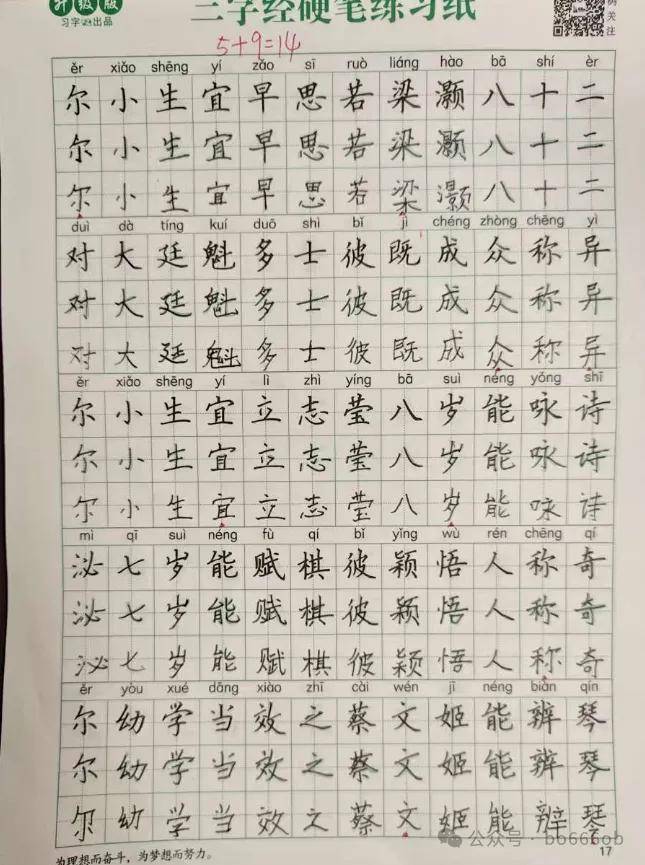 升级版
习字出品
三字经硬笔练习纸
关注
5+9=14
ěr xiǎo shēng yí zǎo sī ruò liáng hào bā shí èr
尔小生宜早思若梁灏八十二
尔小生宜早思若梁灏八十二
尔小生宜早思若梁灏八十二
duì dà tíng kuí duō shì bǐ jì chéng zhòng chēng yì
对大廷魁多士彼既成众称异
对大廷魁多士彼既成众称异
对大廷魁多士彼既成众称异
ěr xiǎo shēng yí lì zhì yíng bā suì néng yǒng shī
尔小生宜立志莹八岁能咏诗
尔小生宜立志莹八岁能咏诗
尔小生宜立志莹八岁能咏诗
mì qī suì néng fù qí bǐ yǐng wù rén chēng qí
泌七岁能赋棋彼颖悟人称奇
泌七岁能赋棋彼颖悟人称奇
泌七岁能赋棋彼颖悟人称奇
ěr yòu xué dāng xiào zhī cài wén jī néng biàn qín
尔幼学当效之蔡文姬能辨琴
尔幼学当效之蔡文姬能辨琴
尔幼学当效之蔡文姬能辨琴
为理想而奋斗，为梦想而努力。
17
公众号·bo666ob